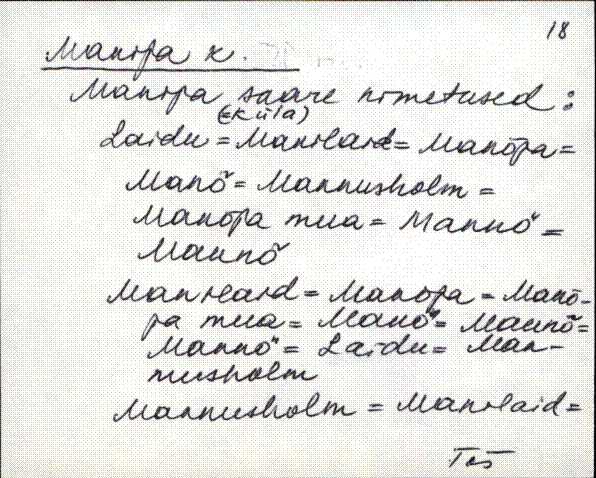 18
Manija k.
Manija saare nimetused:
(=küla)
Laidu = Manilaid = Manõja =
Manõ = Mannusholm =
Manõja mua = Mannõ =
Mannõ
Manilaid = Manõja = Manõ-
ja mua = Manõ = Mannõ =
Mannõ = Laidu = Man-
nusholm
Mannusholm = Manilaid =